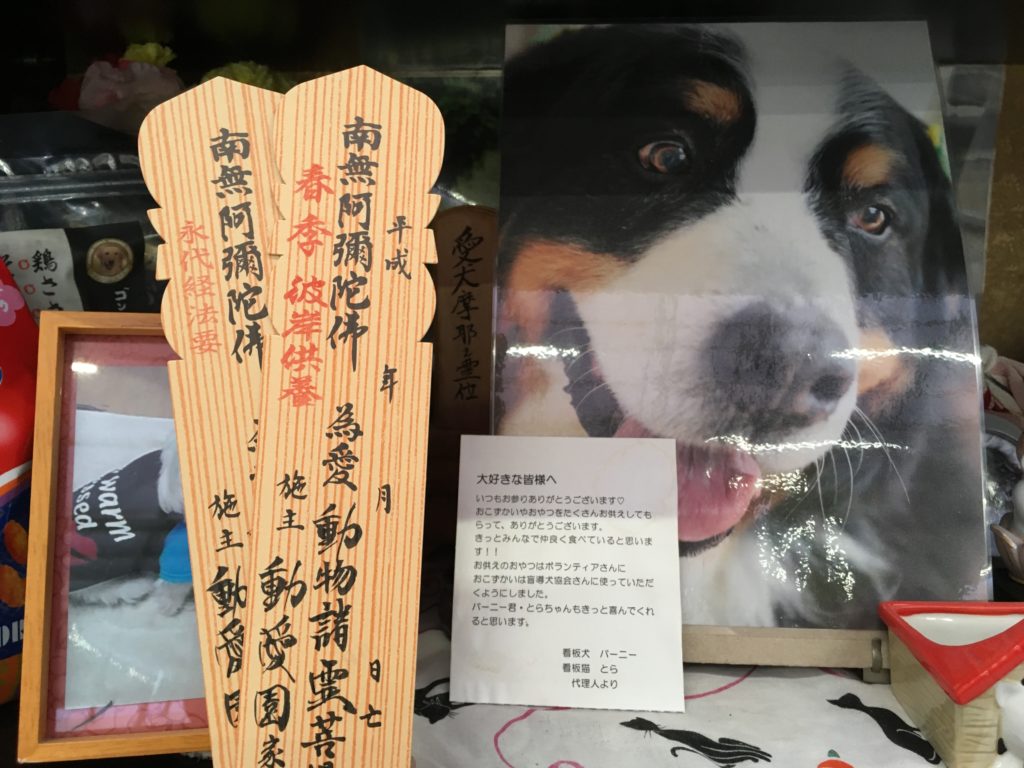 南無阿彌陀佛
永代経法要
施主
動愛園
南無阿彌陀佛
春季彼岸供養
為愛動物諸霊菩
平成
年
月
日亡
施主
動愛園家
愛犬摩耶之霊位
鶏ささ
ゴン
warm
大好きな皆様へ
いつもお参りありがとうございます♡
おこずかいやおやつをたくさんお供えしても
らって、ありがとうございます。
きっとみんなで仲良く食べていると思いま
す！！
お供えのおやつはボランティアさんに
おこずかいは盲導犬協会さんに使っていただ
くようにしました。
バーニー君・とらちゃんもきっと喜んでくれ
ると思います。
看板犬　バーニー
看板猫　とら
代理人より